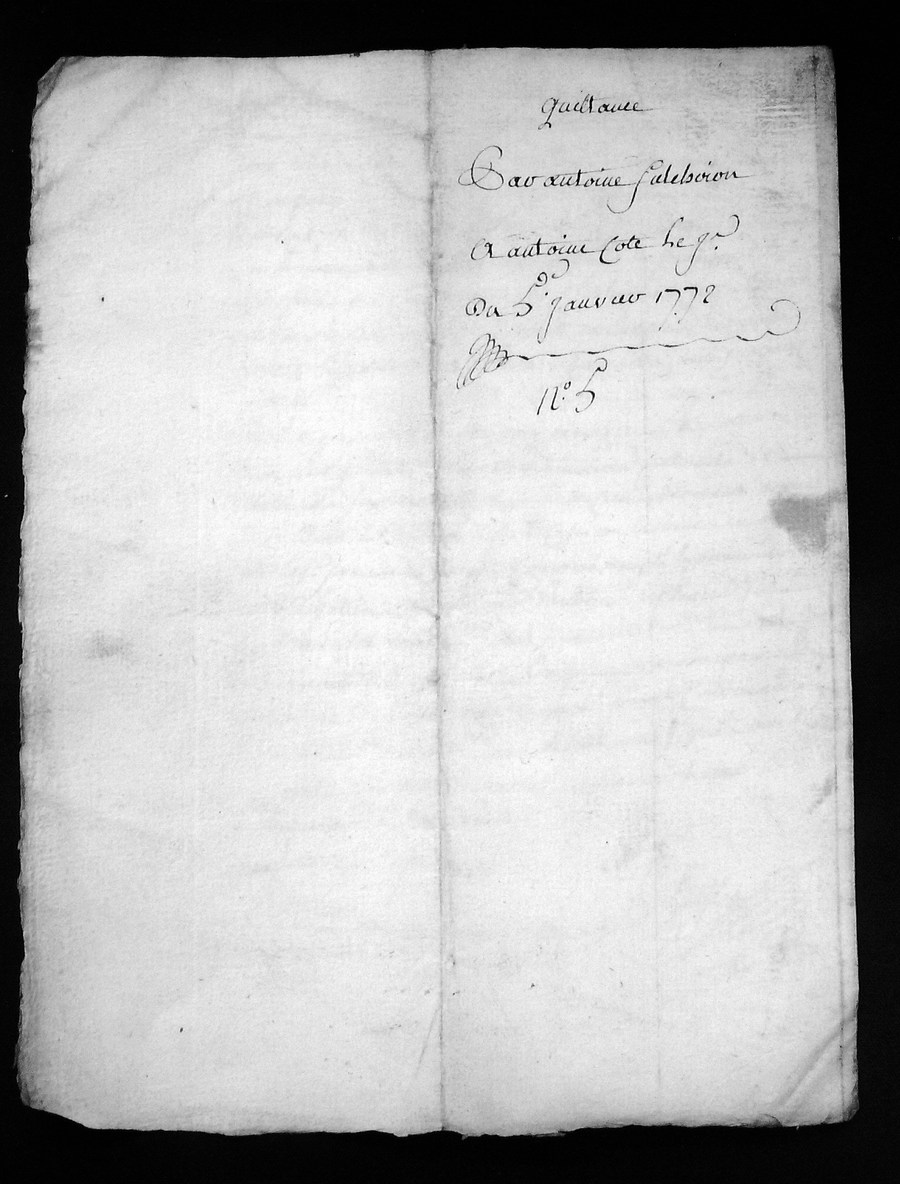 quittance
Par antoine fulchiron
A antoine Cote le jr.
Du 5e. janvier 1772
No. 5